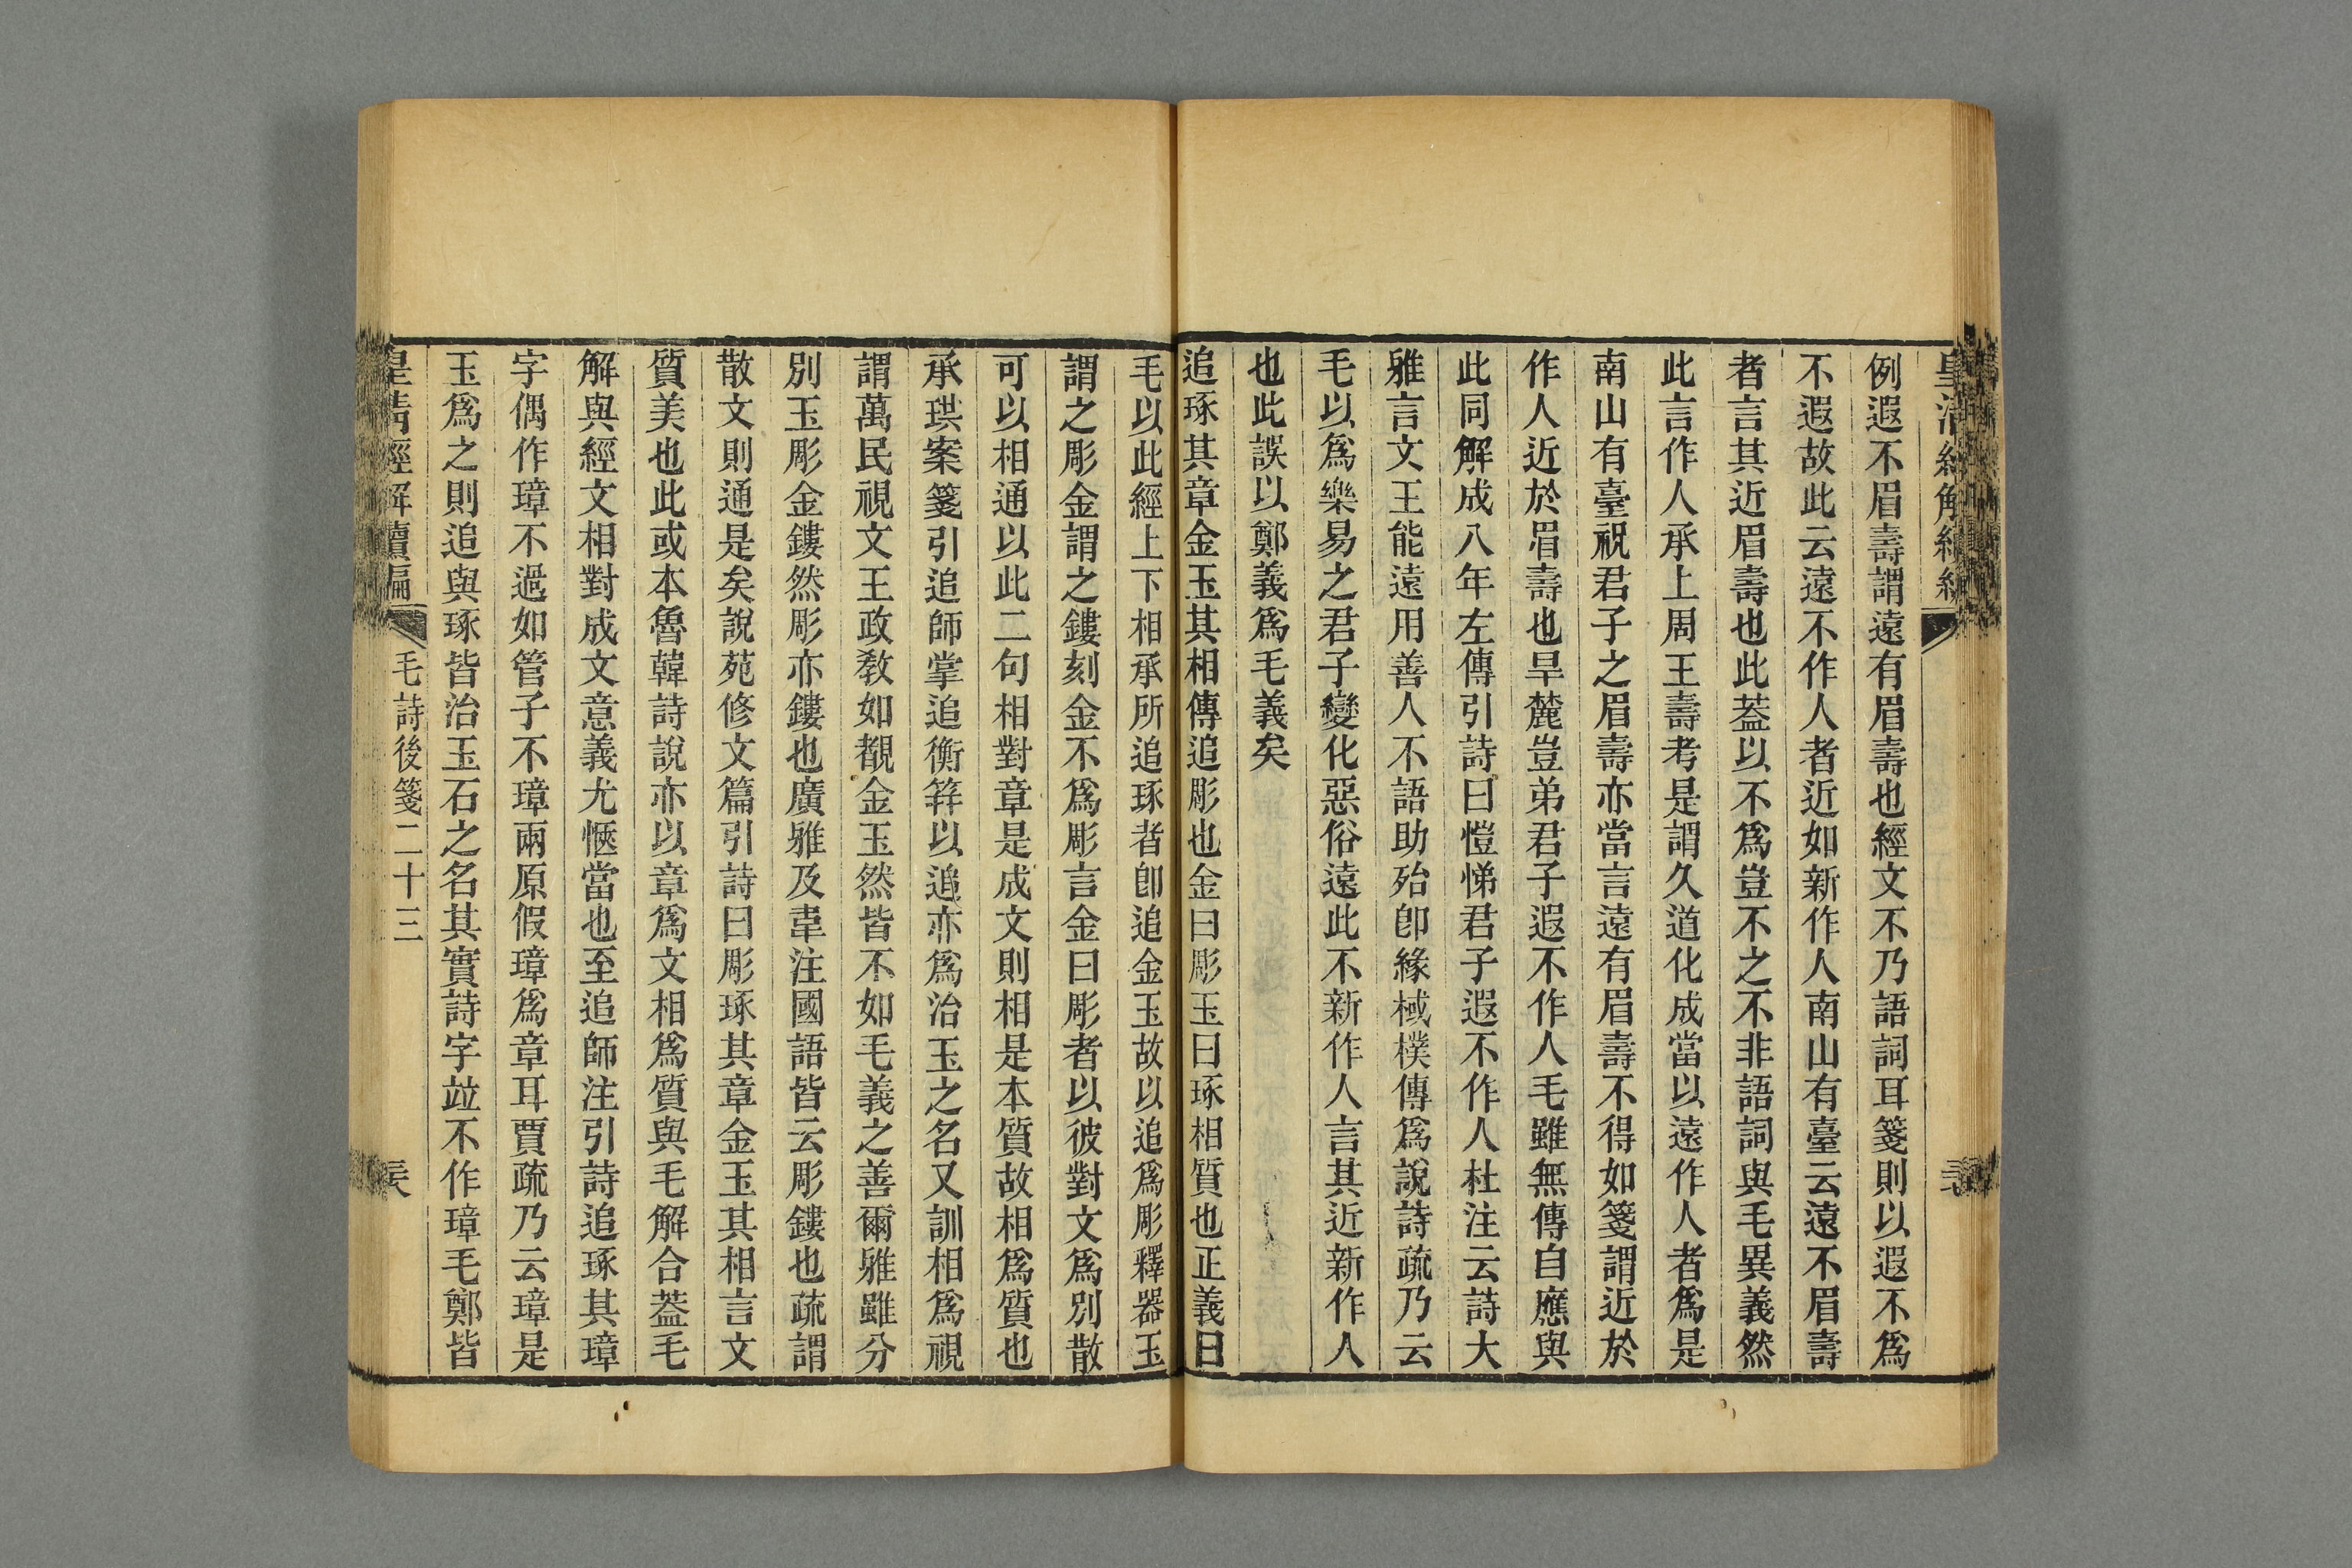 例遐不眉壽謂遠有眉壽也經文不乃語詞耳箋則以遐不爲
不遐故此云遠不作人者近如新作人南山有臺云遠不眉壽
者言其近眉壽也此葢以不爲豈不之不非語詞與毛異義然
此言作人承上周王壽考是謂久道化成當以遠作人者爲是
南山有臺祝君子之眉壽亦當言遠有眉壽不得如箋謂近於
作人近於眉壽也旱麓豈弟君子遐不作人毛雖無傳自應與
此同解成八年左傳引詩曰愷悌君子遐不作人杜注云詩大
雅言文王能遠用善人不語助殆卽緣棫樸傳爲說詩疏乃云
毛以爲樂易之君子變化惡俗遠此不新作人言其近新作人
也此誤以鄭義爲毛義矣
追琢其章金玉其相傳追彫也金曰彫玉曰琢相質也正義曰
毛以此經上下相承所追琢者卽追金玉故以追爲彫釋器玉
謂之彫金謂之鏤刻金不爲彫言金曰彫者以彼對文爲別散
可以相通以此二句相對章是成文則相是本質故相爲質也
承珙案箋引追師掌追衡笄以追亦爲治玉之名又訓相爲視
謂萬民視文王政敎如覩金玉然皆不如毛義之善爾雅雖分
別玉彫金鏤然彫亦鏤也廣雅及韋注國語皆云彫鏤也疏謂
散文則通是矣說苑修文篇引詩曰彫琢其章金玉其相言文
質美也此或本魯韓詩說亦以章爲文相爲質與毛解合葢毛
解與經文相對成文意義尤愜當也至追師注引詩追琢其璋
字偶作璋不過如管子不璋兩原假璋爲章耳賈疏乃云璋是
玉爲之則追與琢皆治玉石之名其實詩字竝不作璋毛鄭皆
皇清經解續編 毛詩後箋二十三